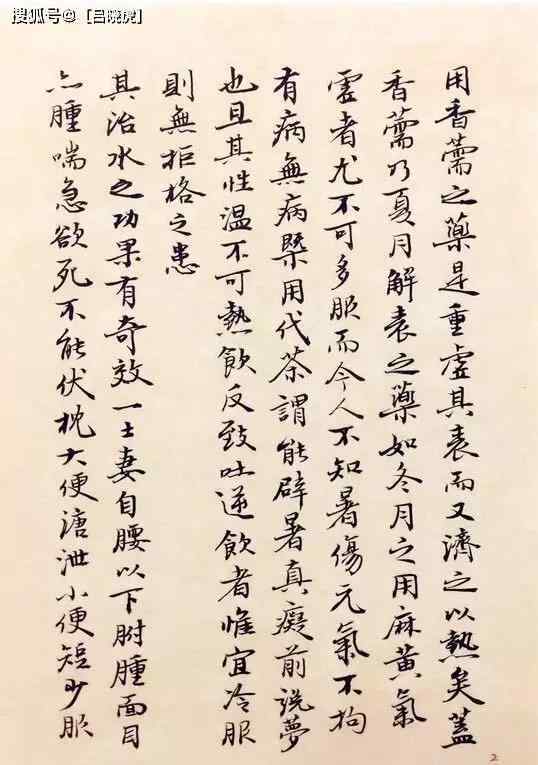 搜狐号@【吕晓虎】
用香薷之藥是重虛其表而又濟之以熱矣蓋
香薷乃夏月解表之藥如冬月之用麻黄氣
虛者尤不可多服而今人不知暑傷元氣不拘
有病無病槩用代茶謂能辟暑真癡前說夢
也且其性温不可熱飲反致吐逆飲者惟宜冷服
則無拒格之患
其治水之功果有奇效一士妻自腰以下胕腫面目
亦腫喘急欲死不能伏枕大便溏泄小便短少服
2